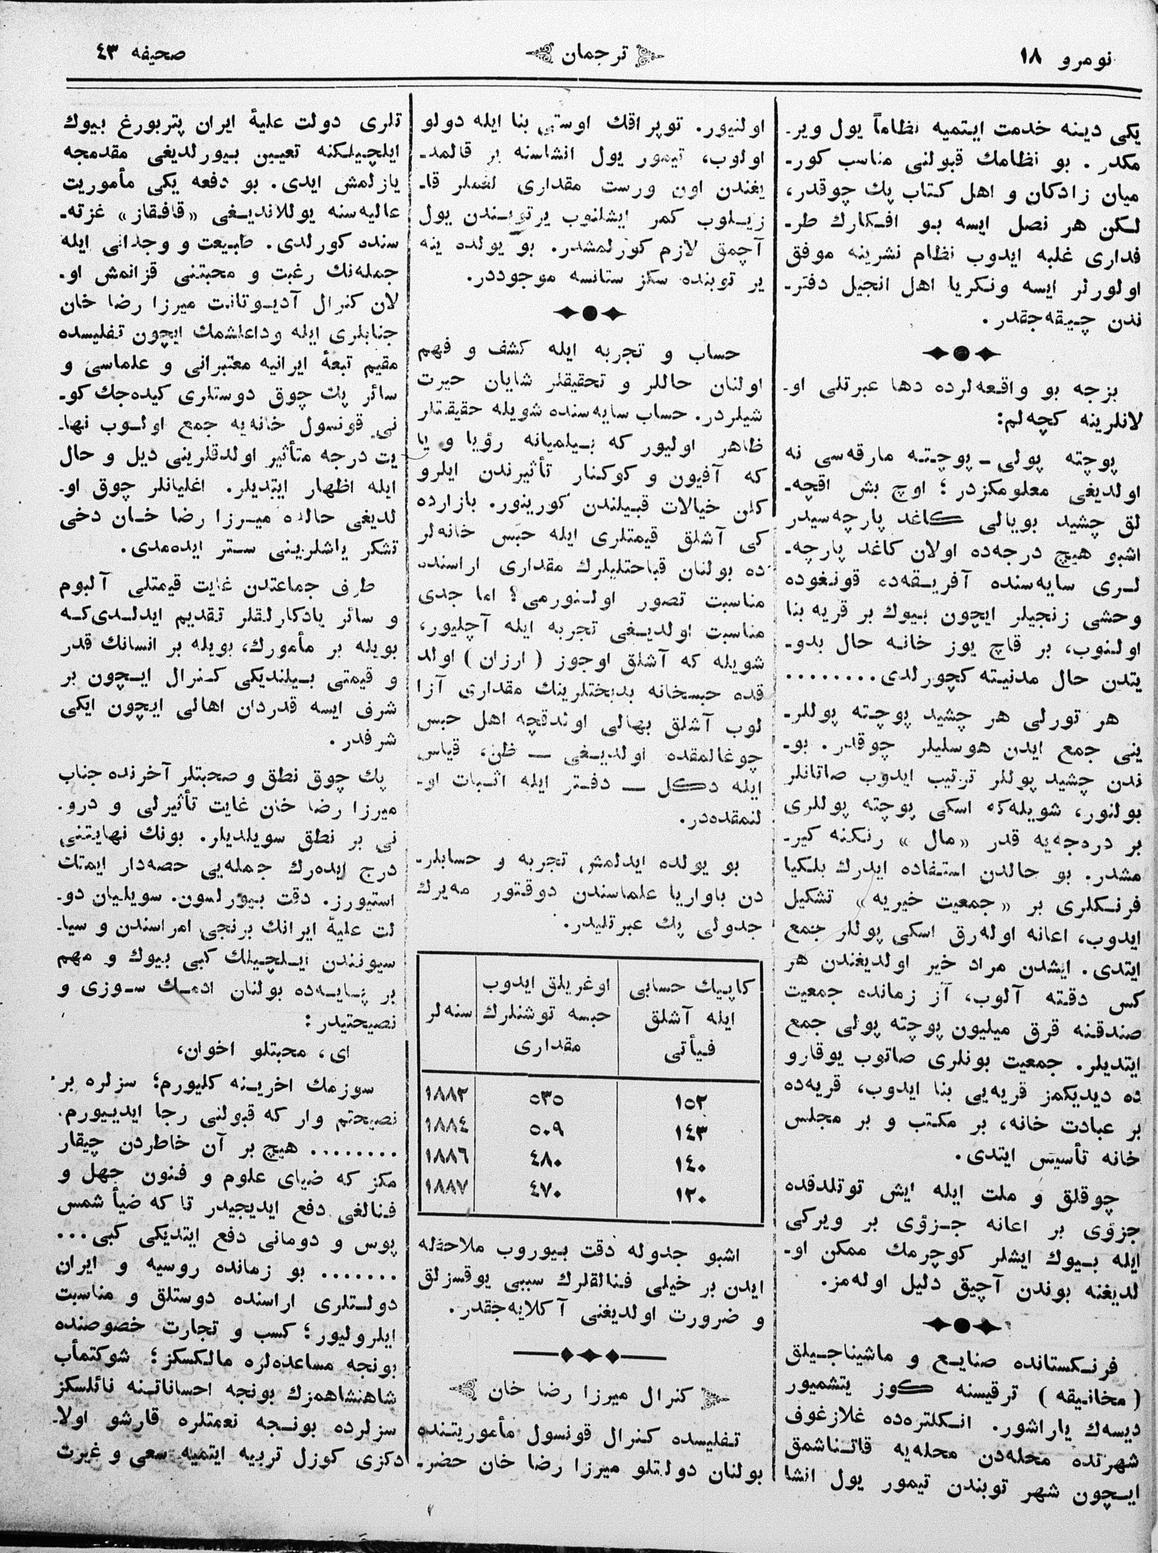 نومرو ١٨
ترجمان
صحیفه ٤٣
یکی دینه خدمت ایتمیه نظاماً یول ویر‌ـ
مکدر . بو نظامك قبولنی مناسب کور‌ـ
میان زادکان و اهل کتاب پك چوقدر،
لکن هر نصل ایسه بو افکارك طر‌ـ
فداری غلبه ایدوب نظام نشرینه موفق
اولورلر ایسه ونکریا اهل انجیل دفتر‌ـ
ندن چیقه‌جقدر.
بزجه بو واقعه‌لرده دها عبرتلی او‌ـ
لانلرینه کچه‌لم:
پوچته پولی ـ پوچته مارقه‌سی نه
اولدیغی معلومکزدر؛ اوچ بش اقچه‌ـ
لق چشید بویالی کاغد پارچه‌سیدر
اشبو هیچ درجه‌ده اولان کاغد پارچه‌ـ
لری سایه‌سنده آفریقه‌ده، قونغوده
وحشی زنجیلر ایچون بیوك بر قریه بنا
اولنوب، بر قاچ یوز خانه حال بدو‌ـ
یتدن حال مدنیته کچورلدی.........
هر تورلی هر چشید پوچته پوللر‌ـ
ینی جمع ایدن هوسلیلر چوقدر. بو‌ـ
ندن چشید پوللر ترتیب ایدوب صاتانلر
بولنور، شویله‌که اسکی پوچته پوللری
بر درجه‌یه قدر «مال» رنکنه کیر‌ـ
مشدر. بو حالدن استفاده ایدرك بلکیا
فرنکلری بر «جمعیت خیریه» تشکیل
ایدوب، اعانه اوله‌رق اسکی پوللر جمع
ایتدی. ایشدن مراد خیر اولدیغندن هر
کس دقته آلوب، آز زمانده جمعیت
صندقنه قرق میلیون پوچته پولی جمع
ایتدیلر. جمعیت بونلری صاتوب یوقارو
ده دیدیکمز قریه‌یی بنا ایدوب، قریه‌ده
بر عبادت خانه، بر مکتب و بر مجلس
خانه تأسیس ایتدی.
چوقلق و ملت ایله ایش توتلدقده
جزؤی بر اعانه جزؤی بر ویرکی
ایله بیوك ایشلر کوچرمك ممکن او‌ـ
لدیغنه بوندن آچیق دلیل اوله‌مز.
فرنکستانده صنایع و ماشیناجیلق
(مخانیقه) ترقیسنه کوز یتشمیور
دیسه‌ك یاراشور. انکلتره‌ده غلازغوف
شهرنده محله‌دن محله‌یه قاتناشمق
ایچون شهر توبندن تیمور یول انشا
اولنیور. توپراقك اوستی بنا ایله دولو
اولوب، تیمور یول انشاسنه بر قالمد‌ـ
یغندن اون ورست مقداری لغملر قا‌ـ
زیلوب کمر ایشلنوب یرتوبندن یول
آچمق لازم کورلمشدر. بو یولده ینه
یر توبنده سکز ستانسه موجوددر.
حساب و تجربه ایله کشف و فهم
اولنان حاللر و تحقیقلر شایان حیرت
شیلردر. حساب سایه‌سنده شویله حقیقتلر
ظاهر اولیور که بیلمیانه رؤیا و یا
که آفیون و کوکنار تأثیرندن ایلرو
کلن خیالات قبیلندن کورینور. بازارده
کی آشلق قیمتلری ایله حبس خانه‌لر
ده بولنان قباحتلیلرك مقداری اراسنده
مناسبت تصور اولنورمی؟ اما جدی
مناسبت اولدیغی تجربه ایله آچلیور،
شویله که آشلق اوجوز (ارزان) اولد
قده حبسخانه بدبختلرینك مقداری آزا
لوب آشلق بهالی اولدقچه اهل حبس
چوغالمقده اولدیغی — ظن، قیاس
ایله دکل — دفتر ایله اثبات او‌ـ
لنمقده‌در.
بو یولده ایدلمش تجربه و حسابلر‌ـ
دن باواریا علماسندن دوقتور مه‌یرك
جدولی پك عبرتلیدر.
کاپیك حسابی ایله آشلق فیأتی | اوغریلق ایدوب حبسه توشنلرك مقداری | سنه‌لر
١٥٢ | ٥٣٥ | ١٨٨٢
١٤٣ | ٥٠٩ | ١٨٨٤
١٤٠ | ٤٨٠ | ١٨٨٦
١٢٠ | ٤٧٠ | ١٨٨٧
اشبو جدوله دقت بیوروب ملاحظه
ایدن بر خیلی فنالقلرك سببی یوقسزلق
و ضرورت اولدیغنی آکلایه‌جقدر.
کنرال میرزا رضا خان
تفلیسده کنرال قونسول مأموریتنده
بولنان دولتلو میرزا رضا خان حضر‌ـ
تلری دولت علیۀ ایران پتربورغ بیوك
ایلچیلکنه تعیین بیورلدیغی مقدمجه
یازلمش ایدی. بو دفعه یکی مأموریت
عالیه‌سنه یوللاندیغی «قافقاز» غزته‌ـ
سنده کورلدی. طبیعت و وجدانی ایله
جمله‌نك رغبت و محبتنی قزانمش او‌ـ
لان کنرال آدیوتانت میرزا رضا خان
جنابلری ایله وداعلشمك ایچون تفلیسده
مقیم تبعۀ ایرانیه معتبرانی و علماسی و
سائر پك چوق دوستلری کیده‌جك کو‌ـ
نی قونسول خانه‌یه جمع اولوب نها‌ـ
یت درجه متأثیر اولدقلرینی دیل و حال
ایله اظهار ایتدیلر. اغلیانلر چوق او‌ـ
لدیغی حالده میرزا رضا خان دخی
تشکر یاشلرینی ستر ایده‌مدی.
طرف جماعتدن غایت قیمتلی آلبوم
و سائر یادکارلقلر تقدیم ایدلدی‌که
بویله بر مأمورك، بویله بر انسانك قدر
و قیمتی بیلندیکی کنرال ایچون بر
شرف ایسه قدردان اهالی ایچون ایکی
شرفدر.
پك چوق نطق و صحبتلر آخرنده جناب
میرزا رضا خان غایت تأثیرلی و درو‌ـ
نی بر نطق سویلدیلر. بونك نهایتنی
درج ایده‌رك جمله‌یی حصه‌دار ایمتك
استیورز. دقت بیورلسون. سویلیان دو‌ـ
لت علیۀ ایرانك برنجی امراسندن و سیا‌ـ
سیونندن ایلچیلك کبی بیوك و مهم
بر پایه‌ده بولنان ادمك سوزی و
نصیحتیدر:
ای، محبتلو اخوان،
سوزمك اخرینه کلیورم؛ سزلره بر
نصیحتم وار که قبولنی رجا ایدییورم.
........ هیچ بر آن خاطردن چیقار
مکز که ضیای علوم و فنون جهل و
فنالغی دفع ایدیجیدر تا که ضیأ شمس
پوس و دومانی دفع ایتدیکی کبی...
....... بو زمانده روسیه و ایران
دولتلری اراسنده دوستلق و مناسبت
ایلرولیور؛ کسب و تجارت خصوصنده
بونجه مساعده‌لره مالکسکز؛ شوکتمأب
شاهنشاهمزك بونجه احساناتنه نائلسکز
سزلرده بونجه نعمتلره قارشو اولا‌ـ
دکزی کوزل تربیه ایتمیه سعی و غیرت